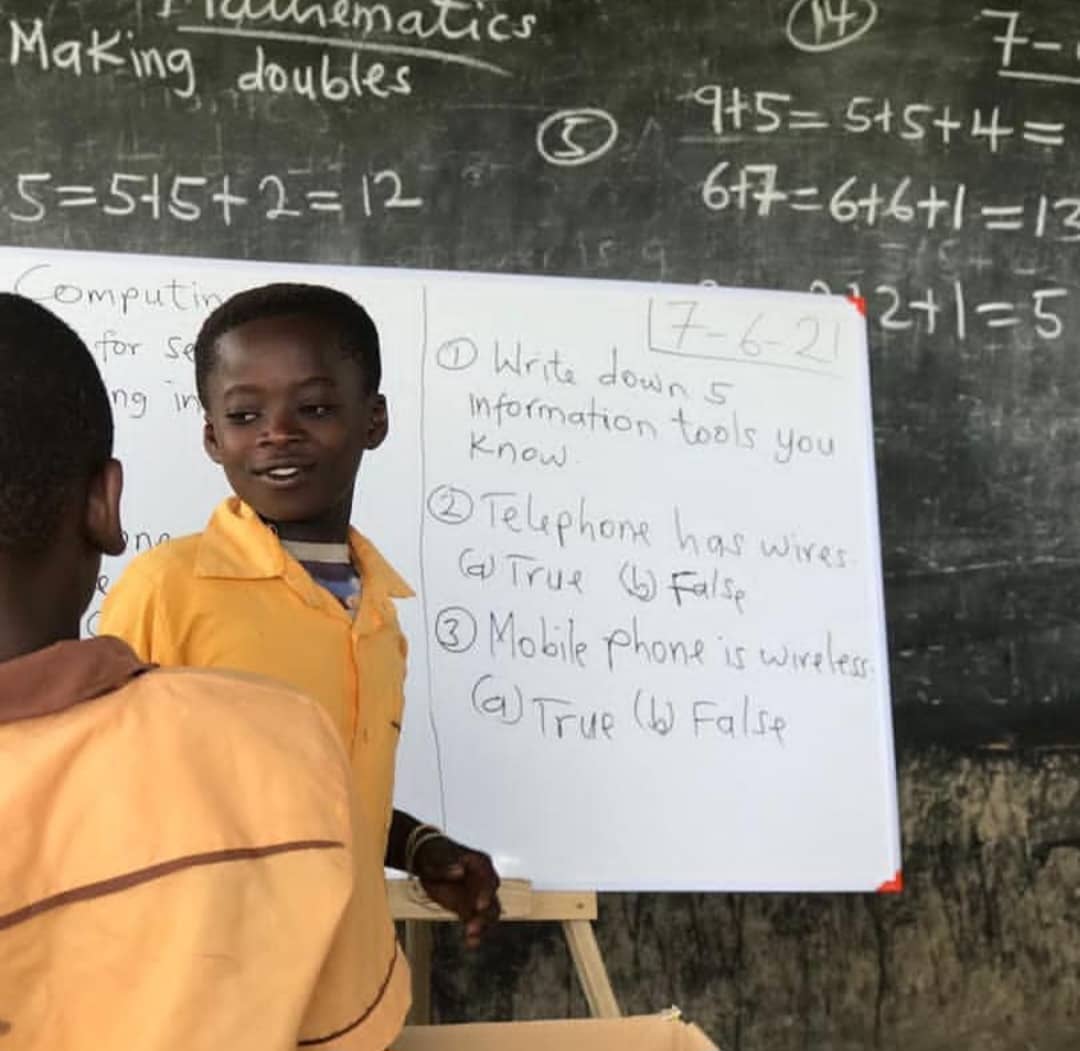 Mathematics
Making doubles
14
7-
5
9+5=5+5+4=
5=5+5+2=12
6+7=6+6+1=13
2+1=5
Computin
for se
ng in
7-6-21
① Write down 5
information tools you
know.
② Telephone has wires.
(a) True (b) False
③ Mobile phone is wireless.
(a) True (b) False